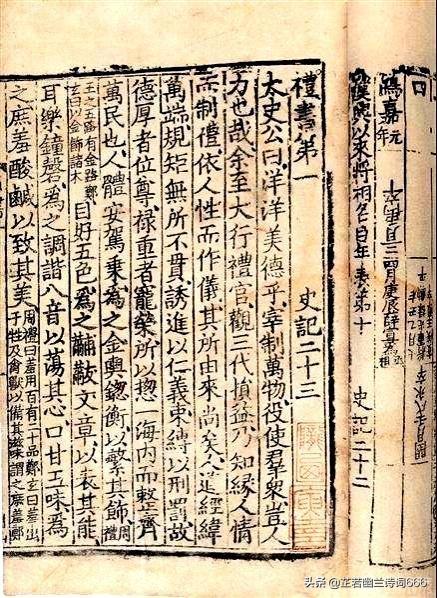 鴻嘉元年
漢興以來將相名臣年表第十 史記二十二
禮書第一 史記二十三
太史公曰洋洋美德乎宰制萬物役使羣衆豈人
力也哉余至大行禮官觀三代損益乃知緣人情
而制禮依人性而作儀其所由來尚矣人道經緯
萬端規矩無所不貫誘進以仁義束縛以刑罰故
德厚者位尊禄重者寵榮所以揔一海内而整齊
萬民也人體安駕乘爲之金輿錯衡以繁其飾周禮
王之五路有金路鄭玄曰以金飾諸末目好五色爲之黼黻文章以表其能
耳樂鐘磬爲之調諧八音以蕩其心口甘五味爲
之庶羞酸鹹以致其美周禮曰羞用百有二十品鄭玄曰羞出于牲及禽獸以備其滋味謂之庶羞鄭
头条 @芷若幽兰诗词666